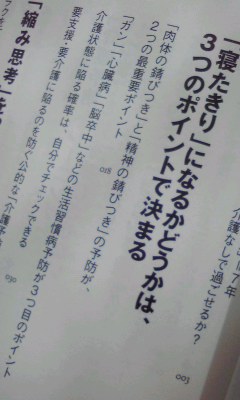 介護なしで過ごせるか？
003
「寝たきり」になるかどうかは、
3つのポイントで決まる
「肉体の錆びつき」と「精神の錆びつき」の予防が、
2つの最重要ポイント
018
「ガン」「心臓病」「脳卒中」などの生活習慣病予防が3つ目のポイント
030
要支援・要介護に陥る確率は、自分でチェックできる
介護状態に陥るのを防ぐ公的な「介護予
「縮み思考」